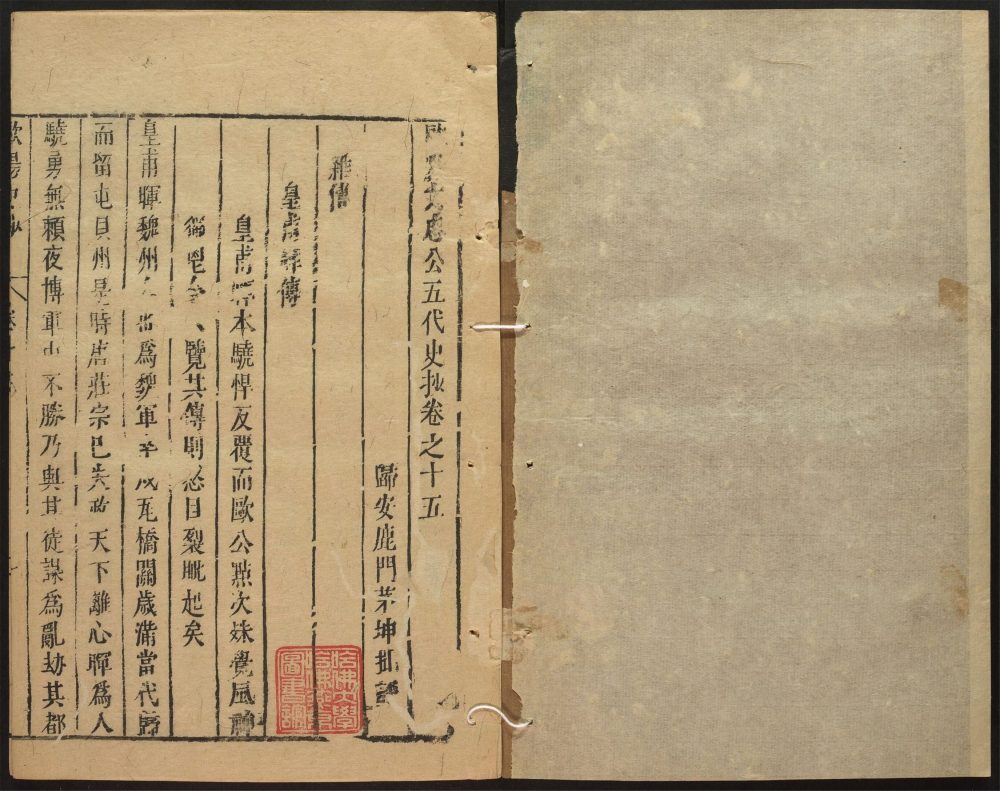 歐陽文忠公五代史抄卷之十五
歸安鹿門茅坤批評
雜傳
皇甫暉傳
皇甫暉本驍悍反覆而歐公點次殊覺風神
覽其傳則怒目裂眦起矣
皇甫暉魏州人也爲魏軍卒戍瓦橋關歲滿當代歸
而留屯貝州是時唐莊宗已失政天下離心暉爲人
驍勇無賴夜博軍中不勝乃與其徒謀爲亂劫其都
歐陽史抄 卷十五
哈佛大學哈佛燕京圖書館